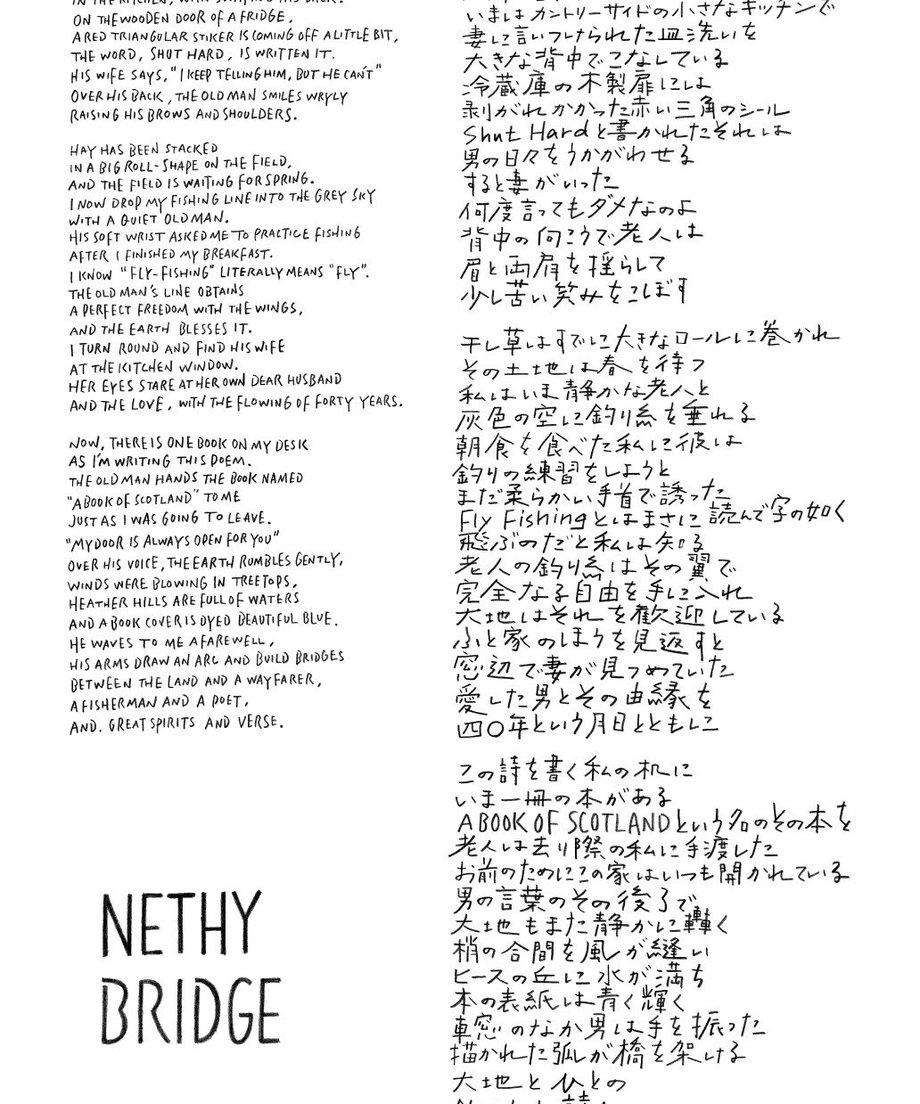 IN THE KITCHEN, WITH
ON THE WOODEN DOOR OF A FRIDGE,
A RED TRIANGULAR STIKER IS COMING OFF A LITTLE BIT,
THE WORD, SHUT HARD, IS WRITTEN IT.
HIS WIFE SAYS, "I KEEP TELLING HIM, BUT HE CAN'T"
OVER HIS BACK, THE OLD MAN SMILES WRYLY
RAISING HIS BROWS AND SHOULDERS.
HAY HAS BEEN STACKED
IN A BIG ROLL-SHAPE ON THE FIELD,
AND THE FIELD IS WAITING FOR SPRING.
I NOW DROP MY FISHING LINE INTO THE GREY SKY
WITH A QUIET OLD MAN.
HIS SOFT WRIST ASKED ME TO PRACTICE FISHING
AFTER I FINISHED MY BREAKFAST.
I KNOW "FLY-FISHING" LITERALLY MEANS "FLY".
THE OLD MAN'S LINE OBTAINS
A PERFECT FREEDOM WITH THE WINGS,
AND THE EARTH BLESSES IT.
I TURN ROUND AND FIND HIS WIFE
AT THE KITCHEN WINDOW.
HER EYES STARE AT HER OWN DEAR HUSBAND
AND THE LOVE, WITH THE FLOWING OF FORTY YEARS.
NOW, THERE IS ONE BOOK ON MY DESK
AS I'M WRITING THIS POEM.
THE OLD MAN HANDS THE BOOK NAMED
"A BOOK OF SCOTLAND" TO ME
JUST AS I WAS GOING TO LEAVE.
"MY DOOR IS ALWAYS OPEN FOR YOU"
OVER HIS VOICE, THE EARTH RUMBLES GENTLY,
WINDS WERE BLOWING IN TREETOPS,
HEATHER HILLS ARE FULL OF WATERS
AND A BOOK COVER IS DYED BEAUTIFUL BLUE.
HE WAVES TO ME A FAREWELL,
HIS ARMS DRAW AN ARC AND BUILD BRIDGES
BETWEEN THE LAND AND A WAYFARER,
A FISHERMAN AND A POET,
AND. GREAT SPIRITS AND VERSE.
NETHY
BRIDGE
いまはカントリーサイドの小さなキッチンで
妻に言いつけられた皿洗いを
大きな背中でこなしている
冷蔵庫の木製扉には
剥がれかかった赤い三角のシール
Shut Hardと書かれたそれは
男の日々をうかがわせる
すると妻がいった
何度言ってもダメなのよ
背中の向こうで老人は
眉と両肩を揺らして
少し苦い笑みをこぼす
干し草はすでに大きなロールに巻かれ
その土地は春を待つ
私はいま静かな老人と
灰色の空に釣り糸を垂れる
朝食を食べた私に彼は
釣りの練習をしようと
まだ柔らかい手首で誘った
Fly Fishingとはまさに読んで字の如く
飛ぶのだと私は知る
老人の釣り糸はその翼で
完全なる自由を手に入れ
大地はそれを歓迎している
ふと家のほうを見返すと
窓辺で妻が見つめていた
愛した男とその由縁を
四〇年という月日とともに
この詩を書く私の机に
いま一冊の本がある
A BOOK OF SCOTLANDという名のその本を
老人は去り際の私に手渡した
お前のためにこの家はいつも開かれている
男の言葉のその後ろで
大地もまた静かに轟く
梢の合間を風が縫い
ヒースの丘に水が満ち
本の表紙は青く輝く
車窓のなか男は手を振った
描かれた弧が橋を架ける
大地とひとの